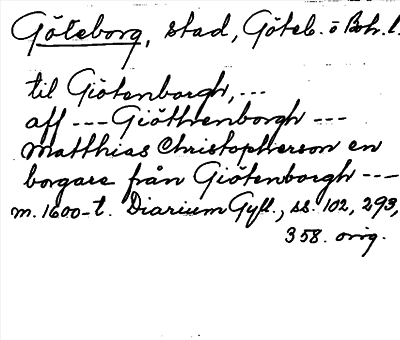 Göteborg, stad, Göteb. o Boh. l.
til Giötenborgh, ---
aff --- Giöthenborgh ---
Matthias Christopherson en
borgare från Giötenborgh ---
m. 1600-t. Diarium Gyll., ss. 102, 293,
358. orig.